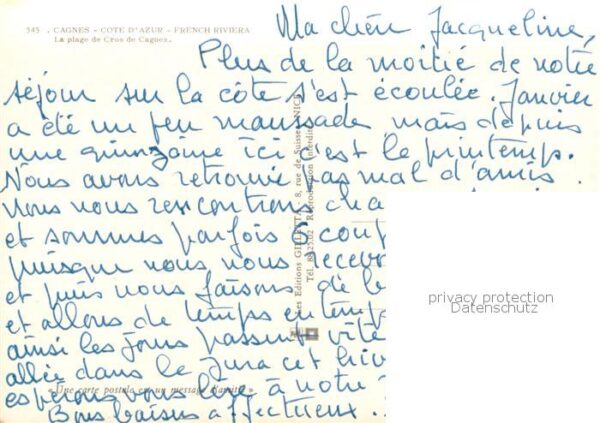 345 . CAGNES - COTE D'AZUR - FRENCH RIVIERA
La plage de Cros de Cagnes.
Ma chère Jacqueline,
Plus de la moitié de notre
séjour sur la côte s'est écoulée. Janvier
a été un peu maussade mais depuis
une quinzaine ici c'est le printemps.
Nous avons retrouvé pas mal d'amis.
Nous nous rencontrons cha
et sommes parfois 6 coup
puisque nous nous recevo
et puis nous faisons de be
et allons de temps en temps
ainsi les jours passent vite
allée dans le Jura cet hiv
espérons vous lire à notre
Bons baisers affectueux ..
« Une carte postale est un message d'amitié »
Les Editions GILLETTA - 8, rue de Suisse - NICE
Reproduction interdite
privacy protection
Datenschutz